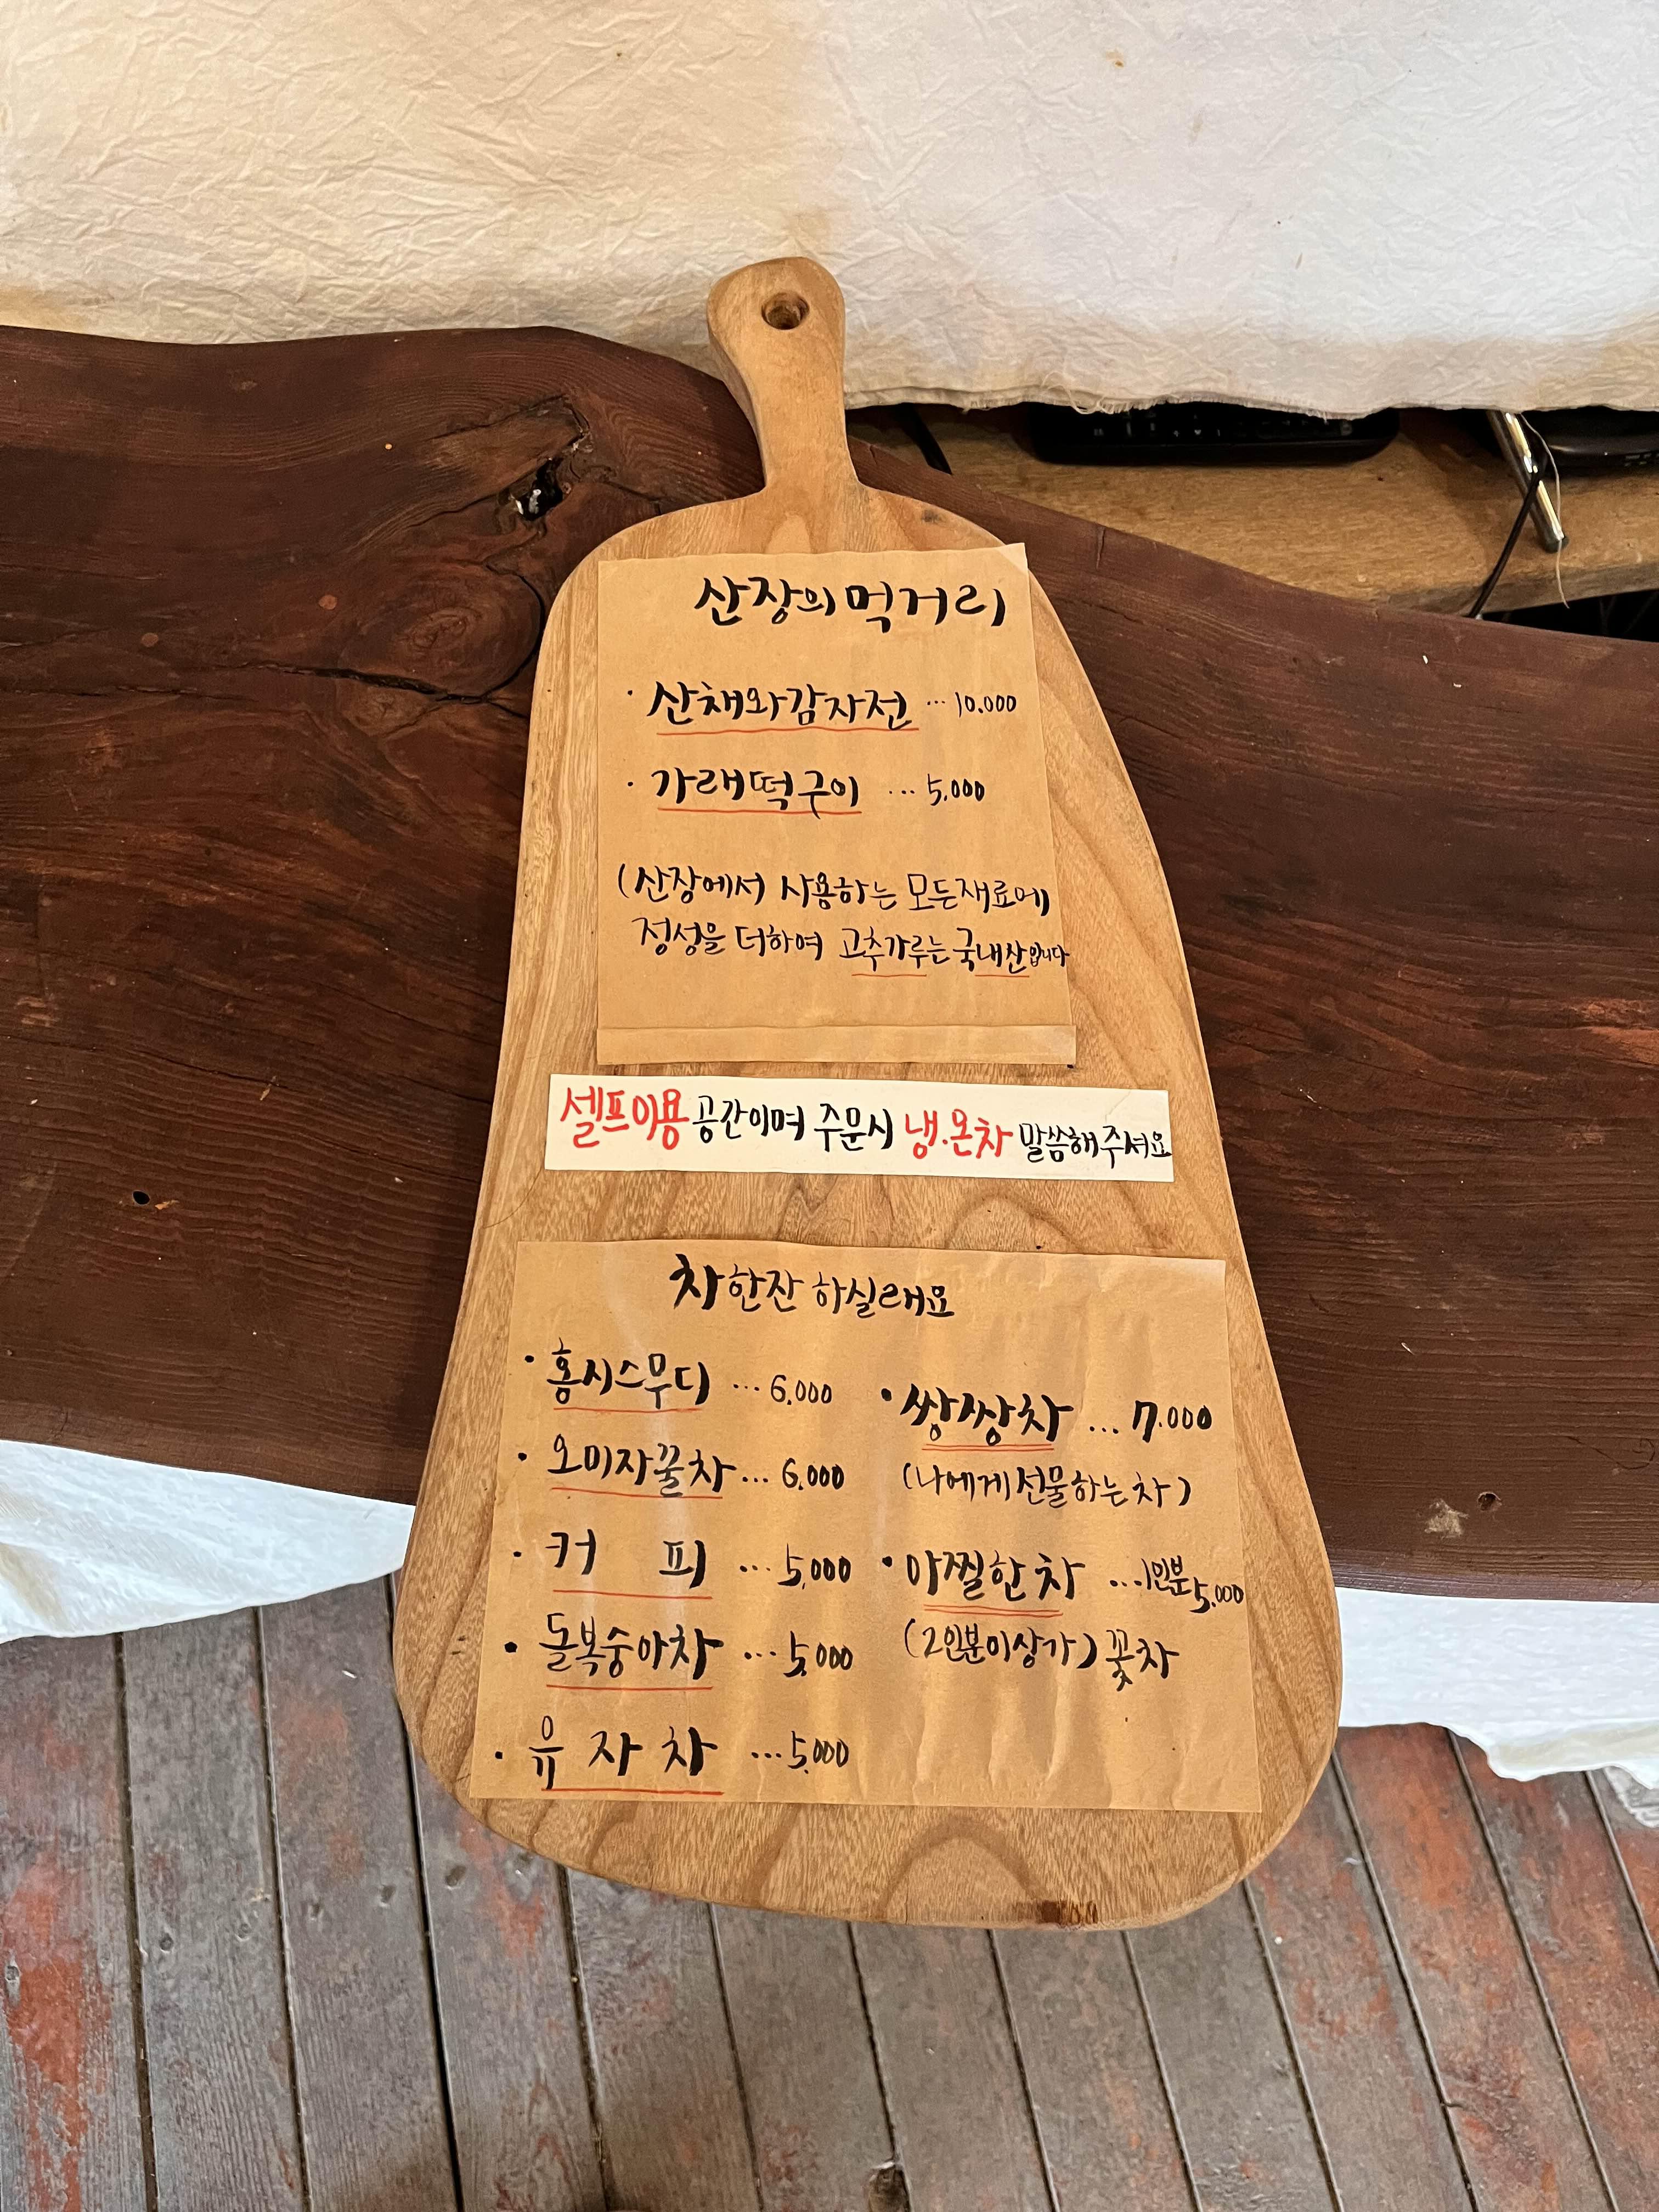 산장의 먹거리
· 산채와감자전 ... 10.000
· 가래떡구이 ... 5.000
(산장에서 사용하는 모든재료에
정성을 더하여 고추가루는국내산입니다
셀프이용공간이며 주문시 냉.온차 말씀해주셔요
차한잔 하실래요
· 홍시스무디 ... 6.000
· 오미자꿀차 ... 6.000
· 커 피 ... 5.000
· 돌복숭아차 ... 5.000
· 유 자 차 ... 5.000
· 쌍쌍차 ... 7.000
(나에게선물하는차)
· 아찔한차 ...1인분5.000
(2인분이상가) 꽃차